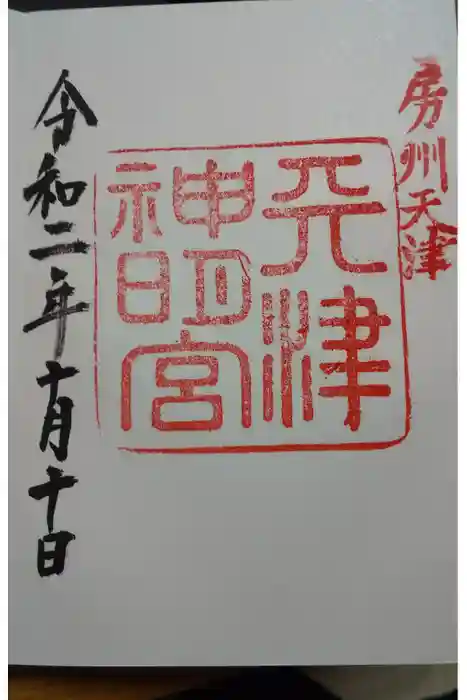 房州天津
天津
神明宮
令和二年十月十日